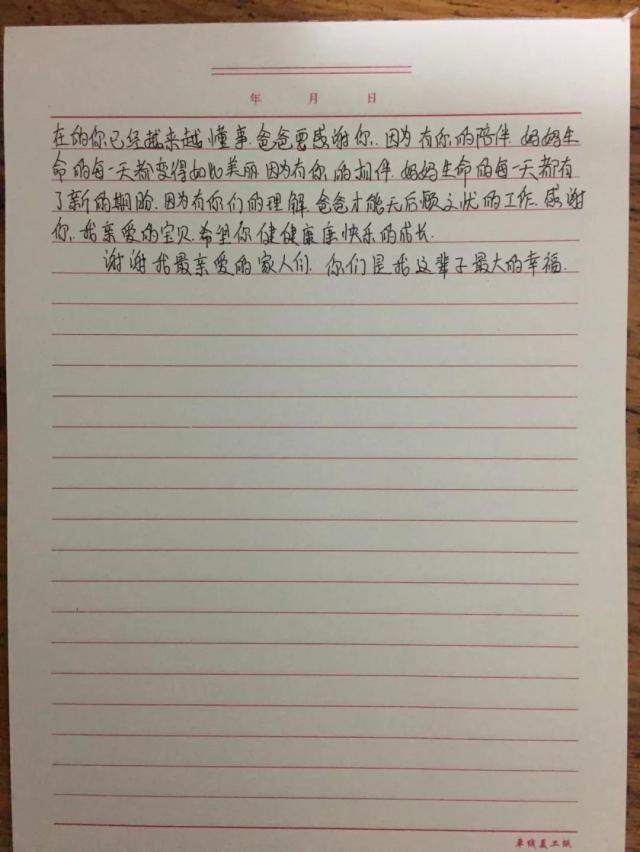 年 月 日
在的你已经越来越懂事.爸爸要感谢你.因为有你的陪伴.妈妈生
命的每一天都变得如此美丽.因为有你的相伴.妈妈生命的每一天都有
了新的期盼.因为有你们的理解.爸爸才能无后顾之忧的工作.感谢
你.我亲爱的宝贝.希望你健健康康快乐的成长.
谢谢我最亲爱的家人们.你们是我这辈子最大的幸福.
单线美工纸